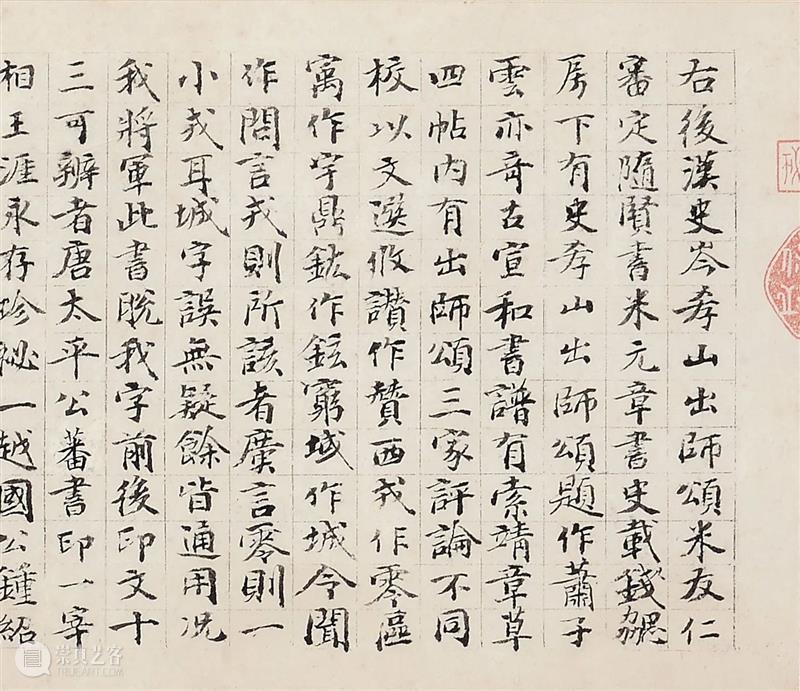 右後漢史岑孝山出師頌米友仁
審定隨賢書米元章書史載錢勰
房下有史孝山出師頌題作蕭子
雲亦奇古宣和書譜有索靖章草
四帖內有出師頌三家評論不同
校以文選攸讚作贊西戎作零區
寓作宇鼎鈜作鉉窮域作城令聞
作問言戎則所該者廣言零則一
小戎耳城字誤無疑餘皆通用况
我將軍此書脫我字前後印文十
三可辨者唐太平公蕃書印一宰
相王涯永存珍祕一越國公鍾紹
崇真艺客